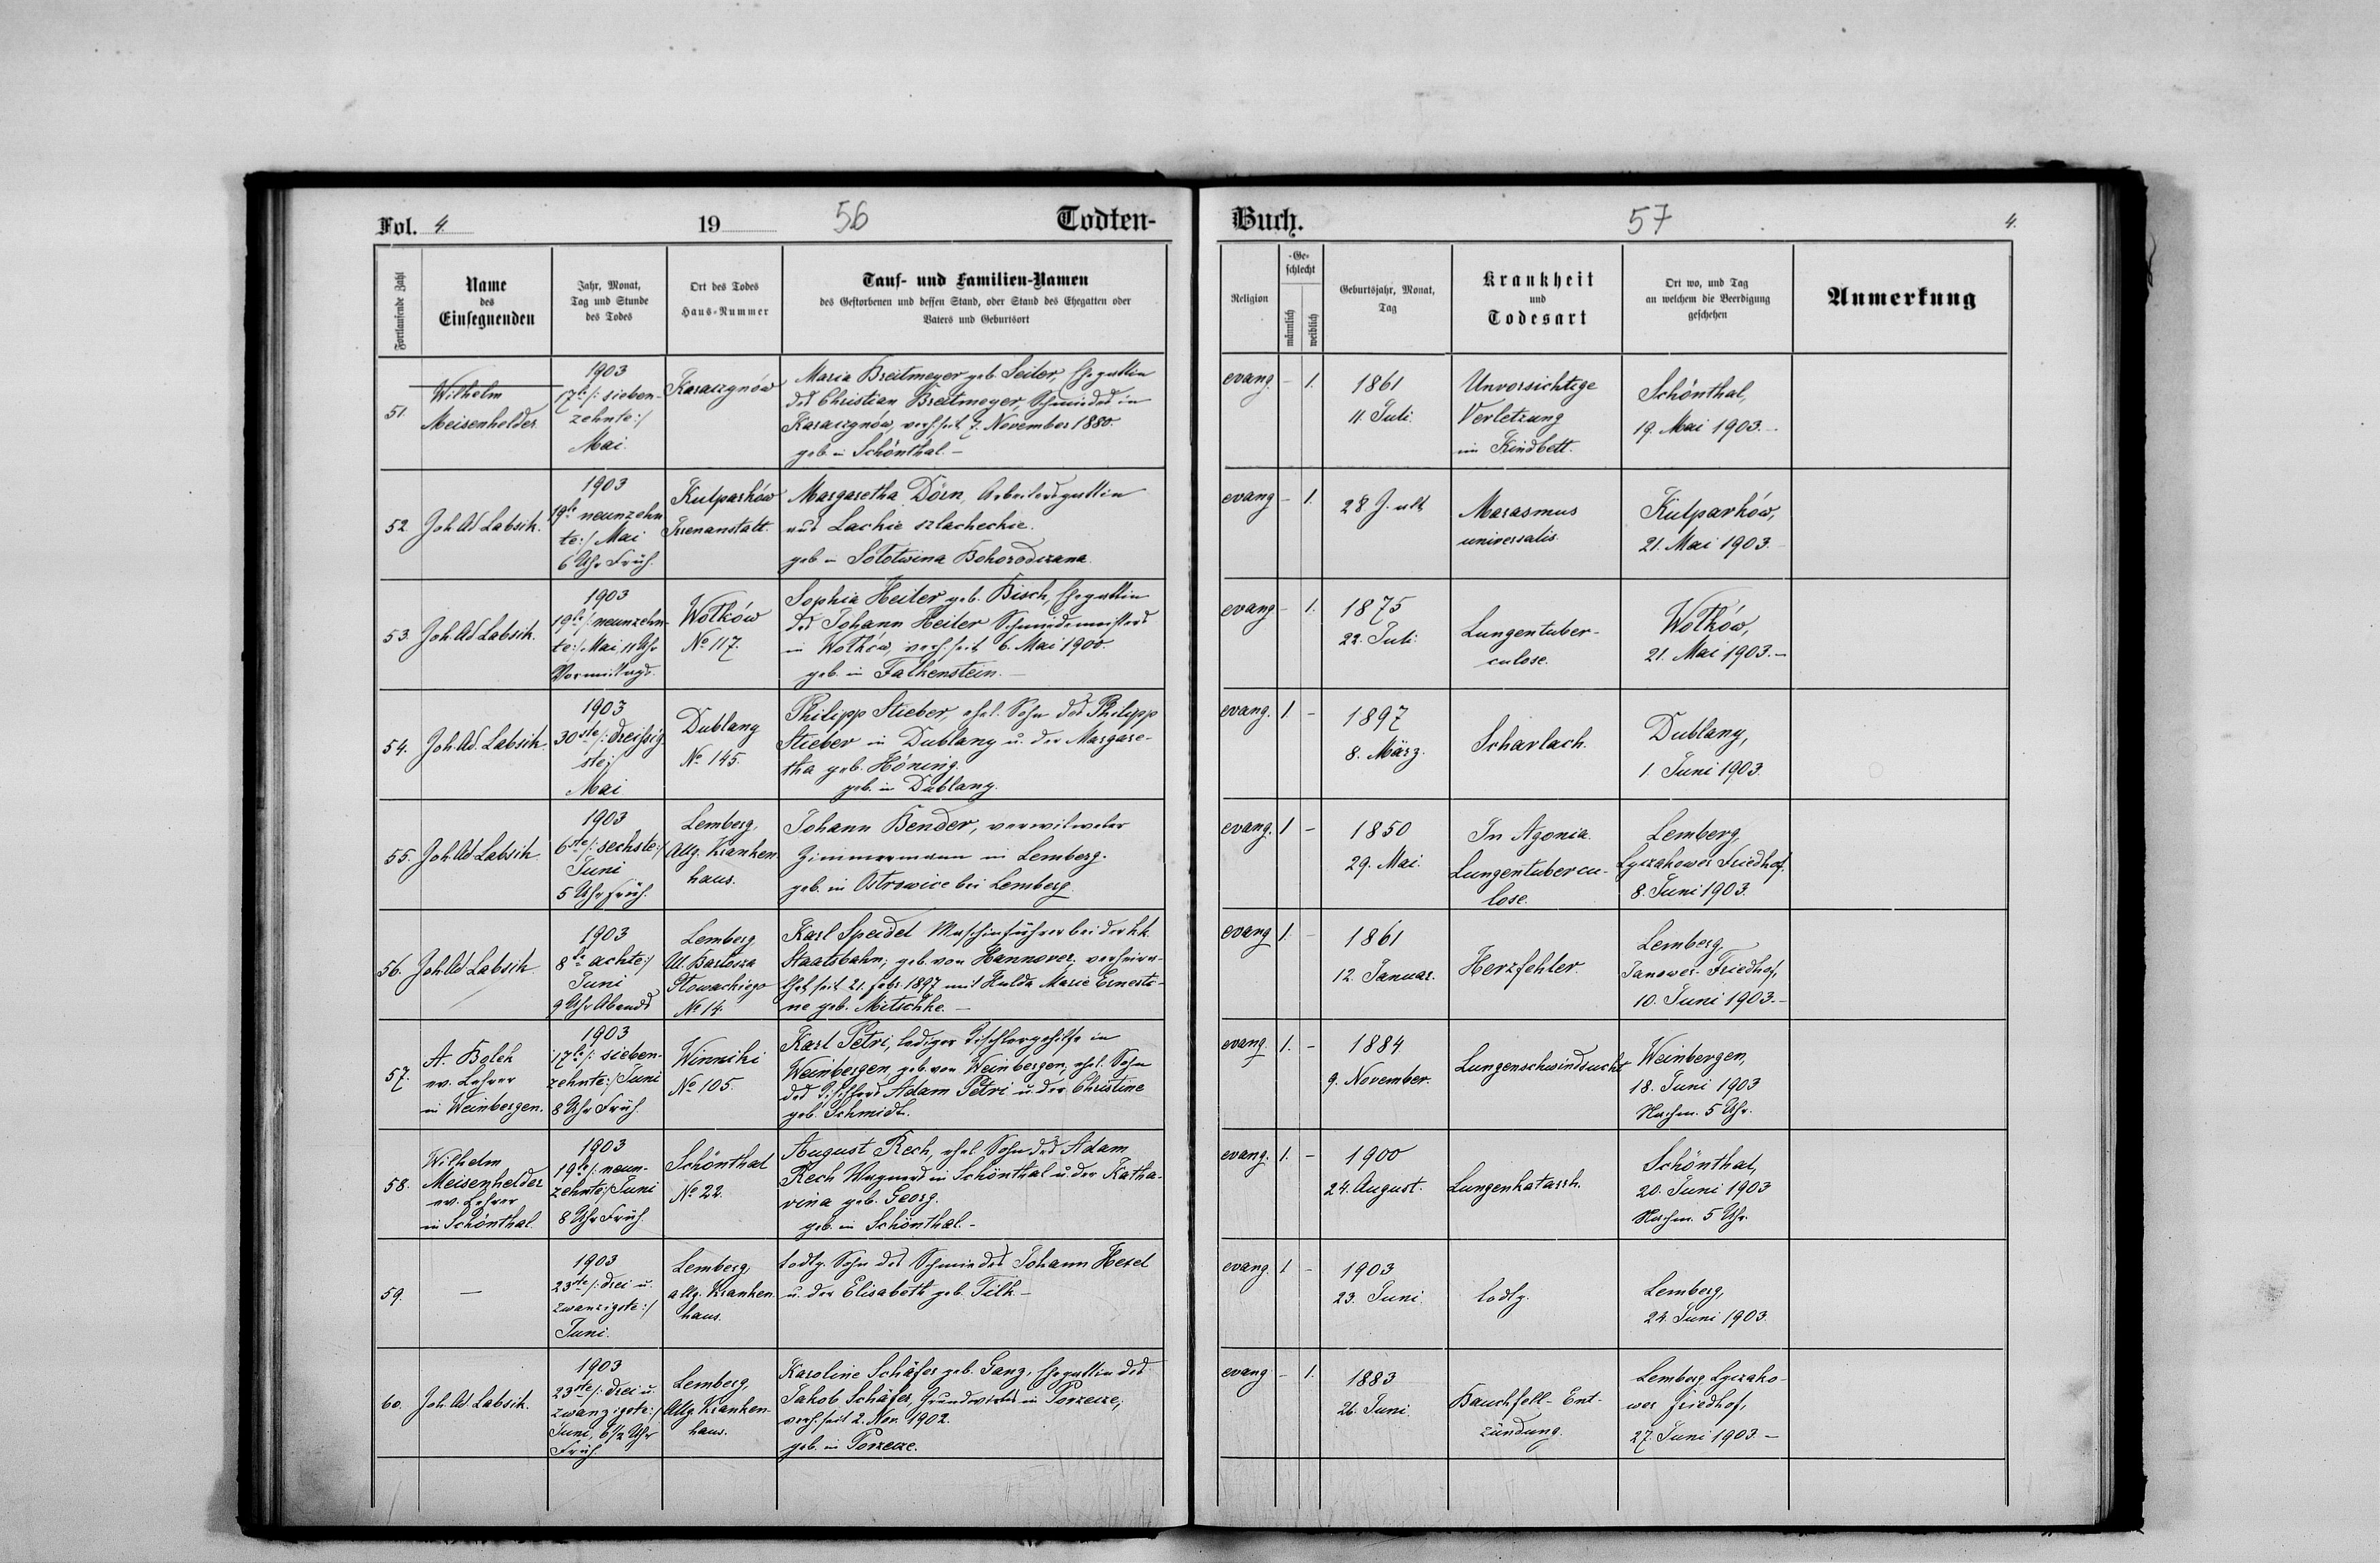 Fol. 4. 19 56 Todten-
Fortlaufende Zahl
Name
des
Einsegnenden
Jahr, Monat,
Tag und Stunde
des Todes
Ort des Todes
Haus-Nummer
Tauf- und Familien-Namen
des Gestorbenen und dessen Stand, oder Stand des Ehegatten oder
Vaters und Geburtsort
Buch. 57 4.
Religion
Ge-
schlecht
männlich
weiblich
Geburtsjahr, Monat,
Tag
Krankheit
und
Todesart
Ort wo, und Tag
an welchem die Beerdigung
geschehen
Anmerkung
51.
Wilhelm
Meisenhelder
1903
17te /: sieben-
zehnte :/
Mai.
Karaczynów
Maria Breitmeyer geb. Seiler, Ehegattin
des Christian Breitmeyer, Schmiedes in
Karaczynów, verh. seit 7. November 1880.
geb. in Schönthal. –
evang. – 1.
1861
11. Juli.
Unvorsichtige
Verletzung
im Kindbett.
Schönthal,
19. Mai 1903. –
52
Joh. Ad. Labsik.
1903
19te neunzehn
te :/ Mai
6 Uhr Früh.
Kulparków
Irrenanstalt.
Margaretha Dörn, Arbeitersgattin
aus Lachie szlacheckie.
geb. in Solotwina Bohorodczana.
evang – 1.
28 J. alt
Marasmus
universalis.
Kulparków,
21. Mai 1903. –
53.
Joh. Ad. Labsik.
1903
19te /: neunzehn-
te :/ Mai, 11 Uhr
Vormittags.
Wolków
No 117.
Sophia Heiler geb. Bisch, Ehegattin
des Johann Heiler Schmiedemeisters
in Wolków, verh. seit 6. Mai 1900.
geb. in Falkenstein. –
evang – 1.
1875
22. Juli.
Lungentuber-
culose.
Wolków,
21. Mai 1903. –
54.
Joh. Ad. Labsik.
1903
30ste /: dreißig
ste :/
Mai
Dublany
No. 145.
Philipp Stieber, ehel. Sohn des Philipp
Stieber in Dublany u. der Margare-
tha geb. Höning.
geb. in Dublany.
evang. 1. –
1897
8. März.
Scharlach.
Dublany,
1. Juni 1903.
55.
Joh. Ad. Labsik.
1903
6ste /: sechste :/
Juni
5 Uhr Früh.
Lemberg,
Allg. Kranken
haus.
Johann Bender, verwitweter
Zimmermann in Lemberg.
geb. in Ostrowice bei Lemberg.
evang. 1 –
1850
29. Mai.
In Agonia.
Lungentubercu-
lose.
Lemberg,
Lyczakower Friedhof.
8. Juni 1903.
56.
Joh. Ad. Labsik.
1903
8te achte :/
Juni
9 Uhr Abends
Lemberg
Ul. Bartosza
Głowackiego
No 14.
Karl Speidel Maschinführer bei der k.k.
Staatsbahn; geb. von Hannover, verheira-
thet seit 21. Febr. 1897 mit Hulda Marie Ernesti-
ne geb. Mitschke. –
evang 1. –
1861
12. Januar.
Herzfehler.
Lemberg,
Janower Friedhof,
10. Juni 1903. –
57.
A. Bolek
ev. Lehrer
in Weinbergen.
1903
17te /: sieben-
zehnte :/ Juni
8 Uhr Früh.
Winniki
No 105.
Karl Petri, lediger Tischlergehilfe in
Weinbergen, geb. von Weinbergen, ehel. Sohn
des Adam Petri u. der Christine
geb. Schmidt.
evang. 1. –
1884
9. November.
Lungenschwindsucht
Weinbergen,
18. Juni 1903
Nachm. 5 Uhr.
58.
Wilhelm
Meisenhelder
ev. Lehrer
in Schönthal.
1903
19te /: neun-
zehnte :/ Juni
8 Uhr Früh.
Schönthal
No 22.
August Rech, ehel. Sohn des Adam
Rech Wagners in Schönthal u. der Katha-
rina geb. Georg.
geb. in Schönthal. –
evang. 1. –
1900
24. August.
Lungenkatarrh.
Schönthal,
20. Juni 1903
Nachm. 5 Uhr.
59.
–
1903
23ste /: drei u.
zwanzigste :/
Juni.
Lemberg,
allg. Kranken
haus.
todtg. Sohn des Schmiedes Johann Hesel
u. der Elisabeth geb. Tilk –
evang. 1 –
1903
23. Juni.
todtg.
Lemberg,
24. Juni 1903.
60.
Joh. Ad. Labsik.
1903
23ste /: drei u.
zwanzigste :/
Juni, 6 1/2 Uhr
Früh.
Lemberg,
Allg. Kranken-
haus.
Karoline Schäfer geb. Ganz, Ehegattin des
Jakob Schäfer, Grundwirtes in Porzecze,
verh. seit 2. Nov. 1902.
geb. in Porzecze.
evang – 1.
1883
26. Juni.
Bauchfell-Ent-
zündung.
Lemberg Lyczako-
wer Friedhof,
27. Juni 1903 –